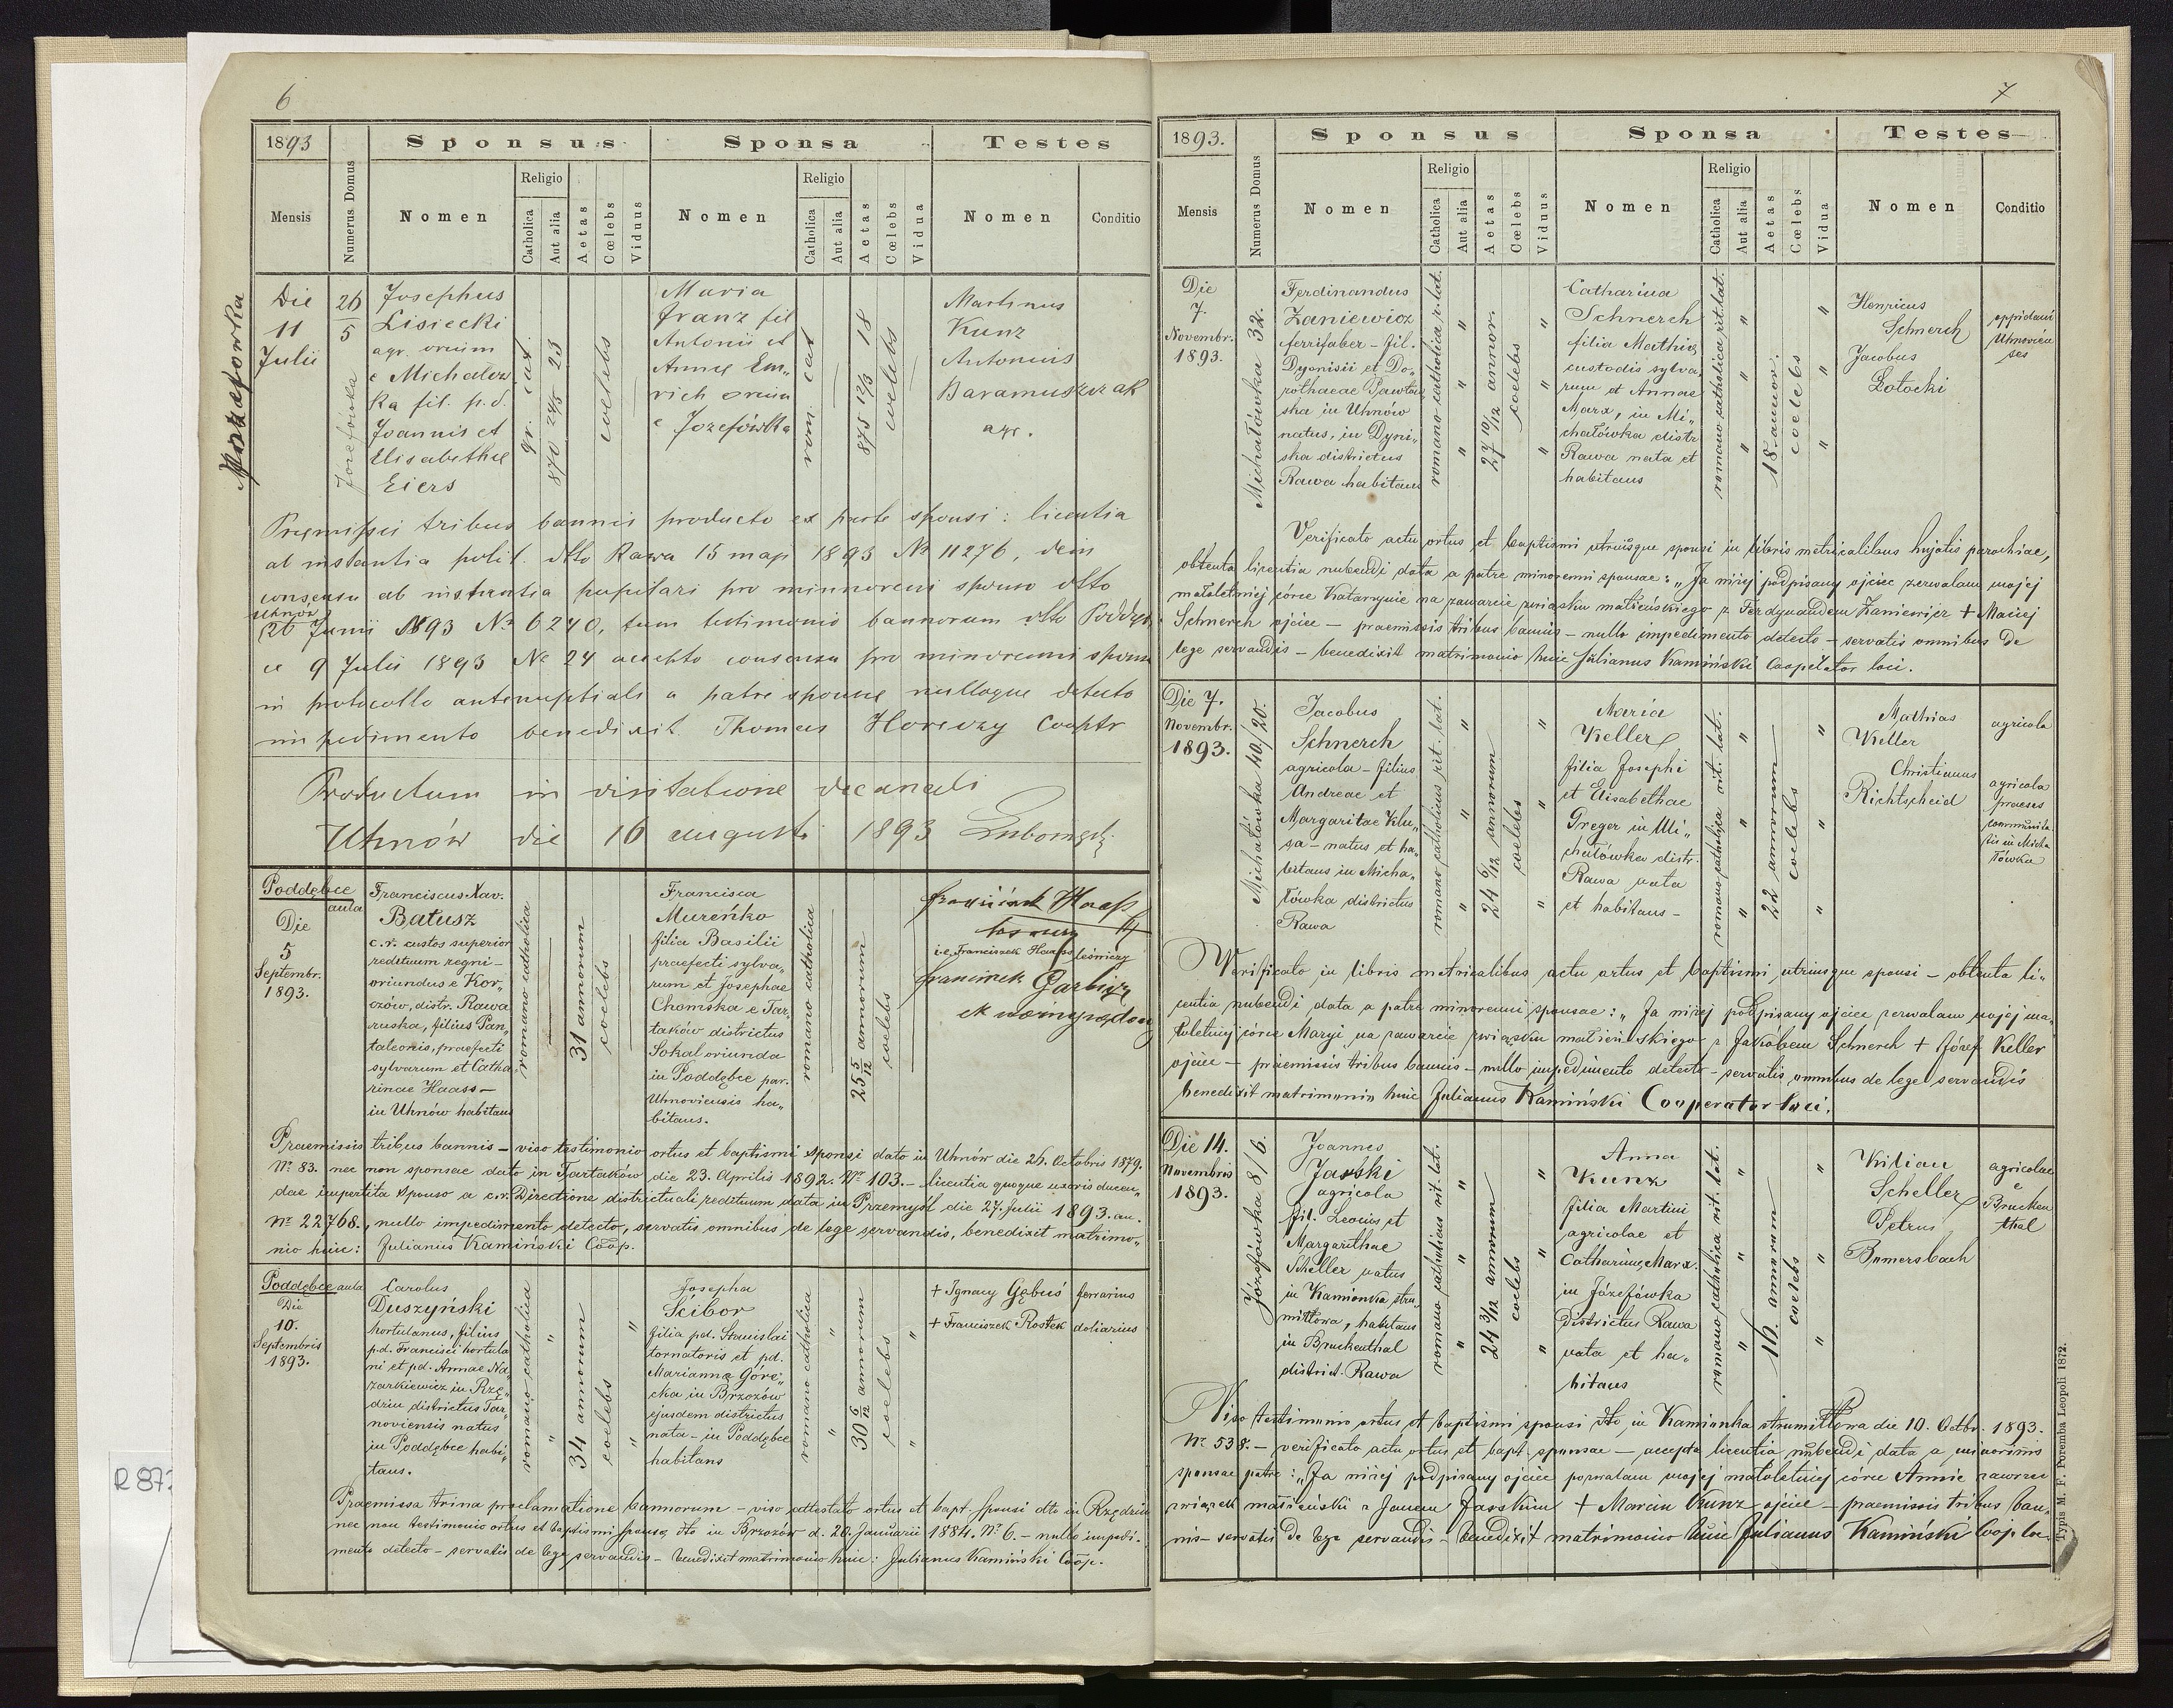 6
1893
Numerus Domus
Sponsus
Sponsa
Testes
Mensis
Nomen
Religio
Catholica
Aut alia
Aetas
Cœlebs
Viduus
Nomen
Religio
Catholica
Aut alia
Aetas
Cœlebs
Vidua
Nomen
Conditio
Die
11
Julii
26
5
Józefówka
Josephus
Lisiecki
agr. oriun
e Michalow
ka fil. p.d.
Joannis et
Elisabethae
Eiers
gr. cat.
870 24/5 23
coelebs
Maria
Franz fil
Antonii et
Annae Em„
rich oriun
e Jozefówka
rom. cat
875 12/3 18
coelebs
Martinus
Kunz
Antonius
Baramuszczak
agr.
Praemissis tribus bannis producto ex parte sponsi: licentia
ab instantia polit. dtto Rawa 15 maji 1893 No 11276, dein
consensu ab instantia pupilari pro minnoreni sponso dtto
Uhnow
26 Junii 1893 No 6240, tum testimonio bannorum dtto Poddęb
ce 9 Julii 1893 No 24 accepto consensu pro minorenni sponsa
in protocollo antenuptiali a patre sponsae nulloque detecto
impedimento benedixit Thomas Horeczy Cooptr
Productum in visitatione decanali
Uhnów die 16 augusti 1893
Poddębce
aula
Die
5
Septembr.
1893.
Franciscus Xav.
Batusz
c.r. custos superior
redituum regni—
oriundus e Kor„
czów, distr. Rawa
ruska, filius Pan„
taleonis, praefecti
sylvarum et Catha
rinae Haass—
in Uhnów habitans
romano catholica
31 annorum
coelebs
Francisca
Mureńko
filia Basilii
praefecti sylva„
rum et Josephae
Chomska e Tar„
taków districtus
Sokal oriunda
in Poddębce par.
Uhnoviensis ha„
bitans.
romano catholica
25 5/12 annorum
coelebs
Franciszek Haass
i.e. Franciszek Haass leśniczy
Franciszek Garbicz
Praemissis tribus bannis — viso testimonio ortus et baptismi sponsi dato in Uhnów die 26. Octobris 1879.
No 83. nec non sponsae dato in Tartaków die 23. Aprilis 1892. No 103. — licentia quoque uxoris ducen„
dae impertita sponso a c.r. Directione districtuali redituum data in Przemyśl die 27. Julii 1893. an.
No 22768., nullo impedimento detecto, servatis omnibus de lege servandis, benedixit matrimo„
nio huic: Julianus Kamiński Coop.
Poddębce aula
Die
10.
Septembris
1893.
Carolus
Duszyński
hortulanus, filius
p.d. Francisci hortula
ni et pd. Annae Na„
zarkiewicz in Rzę„
dzin districtus Tar„
noviensis natus
in Poddębce habi„
tans.
romano catholica
"
"
34 annorum
coelebs
"
"
Josepha
Scibor
filia pd. Stanislai
tornatoris et pd.
Marianna Góre„
cka in Brzozów
ejusdem districtus
nata — in Poddębce
habitans
romano catholica
"
"
30 6/12 annorum
coelebs
"
"
+ Ignacy Gębuś ferrarius
+ Franciszek Rostek doliarius
Praemissa trina proclamatione bannorum — viso attestato ortus et bapt. sponsi dto in Rzędzin
nec non testimonio ortus et baptismi sponsae dto in Brzozów d. 20. Januarii 1884. No 6. — nullo impedi„
mento detecto — servatis de lege servandis — benedixit matrimonio huic: Julianus Kamiński Coop.
7
1893.
Numerus Domus
Sponsus
Sponsa
Testes
Mensis
Nomen
Religio
Catholica
Aut alia
Aetas
Cœlebs
Viduus
Nomen
Religio
Catholica
Aut alia
Aetas
Cœlebs
Vidua
Nomen
Conditio
Die
7.
Novembr.
1893.
Michałówka 32.
Ferdinandus
Zaniewicz
ferrifaber — fil.
Dyonisii et Do„
rothaeae Pawłow
ska in Uhnów
natus, in Dyni„
ska districtus
Rawa habitans
romano catholica rit. lat.
"
"
"
27 10/12 annor.
coelebs
"
"
"
Catharina
Schnerch
filia Mathiae
custodis sylva„
rum et Annae
Marx, in Mi„
chałówka distr.
Rawa nata et
habitans
romano catholica rit. lat.
"
"
"
18 annor.
coelebs
"
"
"
Henricus
Schnerch
Jacobus
Łotocki
oppidani
Uhnovien
ses
Verificato actu ortus et baptismi utriusque sponsi in libris metricalibus hujatis parochiae,
obtenta licentia nubendi data a patre minorenni sponsae: „Ja niżej podpisany ojciec zezwalam mojej
małoletniej córce Katarzynie na zawarcie związku małżeńskiego z Ferdynandem Zaniewicz + Maciej
Schnerch ojciec — praemissis tribus bannis — nullo impedimento detecto — servatis omnibus de
lege servandis — benedixit matrimonio huic Julianus Kamiński Coopetator loci.
Die 7.
Novembr.
1893.
Michałówka 40/20.
Jacobus
Schnerch
agricola — filius
Andreae et
Margaritae Klu„
sa — natus et ha„
bitans in Micha„
łówka districtus
Rawa
romano catholicus rit. lat.
"
"
"
24 6/12 annorum
coelebs
"
"
"
Maria
Keller
filia Josephi
et Elisabethae
Greger in Mi„
chałówka distr.
Rawa nata
et habitans —
romano catholica rit. lat.
"
"
"
22 annorum
coelebs
"
"
"
Mathias
Keller
Christianus
Richtscheid
agricola
agricola
praeses
communita„
tis in Micha
łówka
Verificato in libris metricalibus actu ortus et baptismi utriusque sponsi — obtenta li„
centia nubendi data a patre minorenni sponsae: „Ja niżej podpisany ojciec zezwalam mojej ma„
łoletniej córce Maryi na zawarcie związku małżeńskiego z Jakóbem Schnerch + Józef Keller
ojciec — praemissis tribus bannis — nullo impedimento detecto — servatis omnibus de lege servandis
benedixit matrimonio huic Julianus Kamiński Cooperator loci.
Die 14.
Novembris
1893.
Józefówka 8/6.
Joannes
Jasski
agricola
fil. Leonis et
Margarithae
Scheller natus
in Kamionka stru„
miłłowa, habitans
in Bruckenthal
district. Rawa
romano catholicus rit. lat.
"
"
"
24 3/12 annorum
coelebs
"
"
"
Anna
Kunz
filia Martini
agricolae et
Catharinae Marx.
in Józefówka
Districtus Rawa
nata et ha„
bitans
romano catholica rit. lat.
"
"
"
16. annorum
coelebs
"
"
"
Kilian
Scheller
Petrus
Bumersbach
agricolae
e
Brucken
thal
Viso testimonio ortus et baptismi sponsi dto in Kamionka strumiłłowa die 10. Octbr. 1893.
No 538. — verificato actu ortus et bapt. sponsae — accepta licentia nubendi data a minorinis
sponsae patre: „Ja niżej podpisany ojciec pozwalam mojej małoletniej córce Annie zawrzeć
związek małżeński z Janem Jasskim + Marcin Kunz ojciec — praemissis tribus ban„
nis — servatis de lege servandis — benedixit matrimonio huic Julianus Kamiński Coop. loc.
Typis M. F. Poremba Leopoli 1872.
R 87